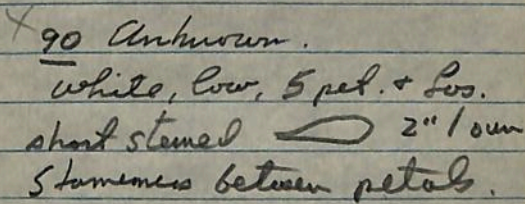 x 90 Unknown.
white, low, 5 pet. + Los.
short stemed 2" / own
Stamemens between petals.